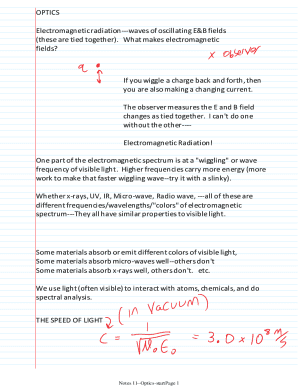 OPTICS
Electromagnetic radiation---waves of oscillating E&B fields
(these are tied together).   What makes electromagnetic
fields?
x observer
q
If you wiggle a charge back and forth, then
you are also making a changing current.
The observer measures the E and B field
changes as tied together.  I can't do one
without the other----
Electromagnetic Radiation!
One part of the electromagnetic spectrum is at a "wiggling" or wave
frequency of visible light.  Higher frequencies carry more energy (more
work to make that faster wiggling wave--try it with a slinky).
Whether x-rays, UV, IR, Micro-wave, Radio wave, ---all of these are
different frequencies/wavelengths/"colors" of electromagnetic
spectrum---They all have similar properties to visible light.
Some materials absorb or emit different colors of visible light,
Some materials absorb micro-waves well--others don't
Some materials absorb x-rays well, others don't.  etc.
We use light (often visible) to interact with atoms, chemicals, and do
spectral analysis.
(in vacuum)
THE SPEED OF LIGHT
c = 1/√μ₀ε₀ = 3.0 x 10⁸ m/s
Notes 11--Optics-start Page 1